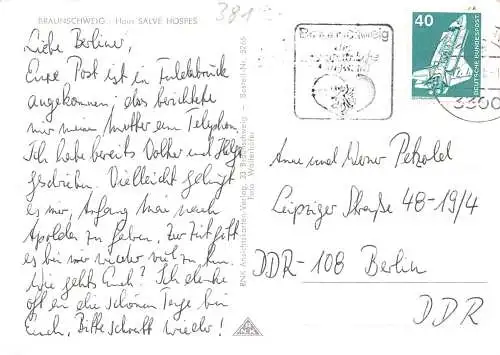 BRAUNSCHWEIG - Haus SALVE HOSPES
381
Liebe Berliner,
Eure Post ist in
angekommen, das berichtete
mir meine Mutter am Telephon.
Ich habe bereits Volker und Helga
geschrieben. Vielleicht gelingt
es mir, Anfang Mai nach
Apolda zu fahren. Zur Zeit gibt
es bei mir wieder viel zu tun.
Wie gehts Euch? Ich denke
oft an die schönen Tage bei
Euch. Bitte schreibt wieder!
Bestell-Nr. 3266
RNK Ansichtskarten-Verlag, 33 Braunschweig
Foto
RNK
Braunschweig
40
DEUTSCHE BUNDESPOST
3300
Anne und Werner Petzold
Leipziger Straße 48-19/4
DDR-108 Berlin
DDR